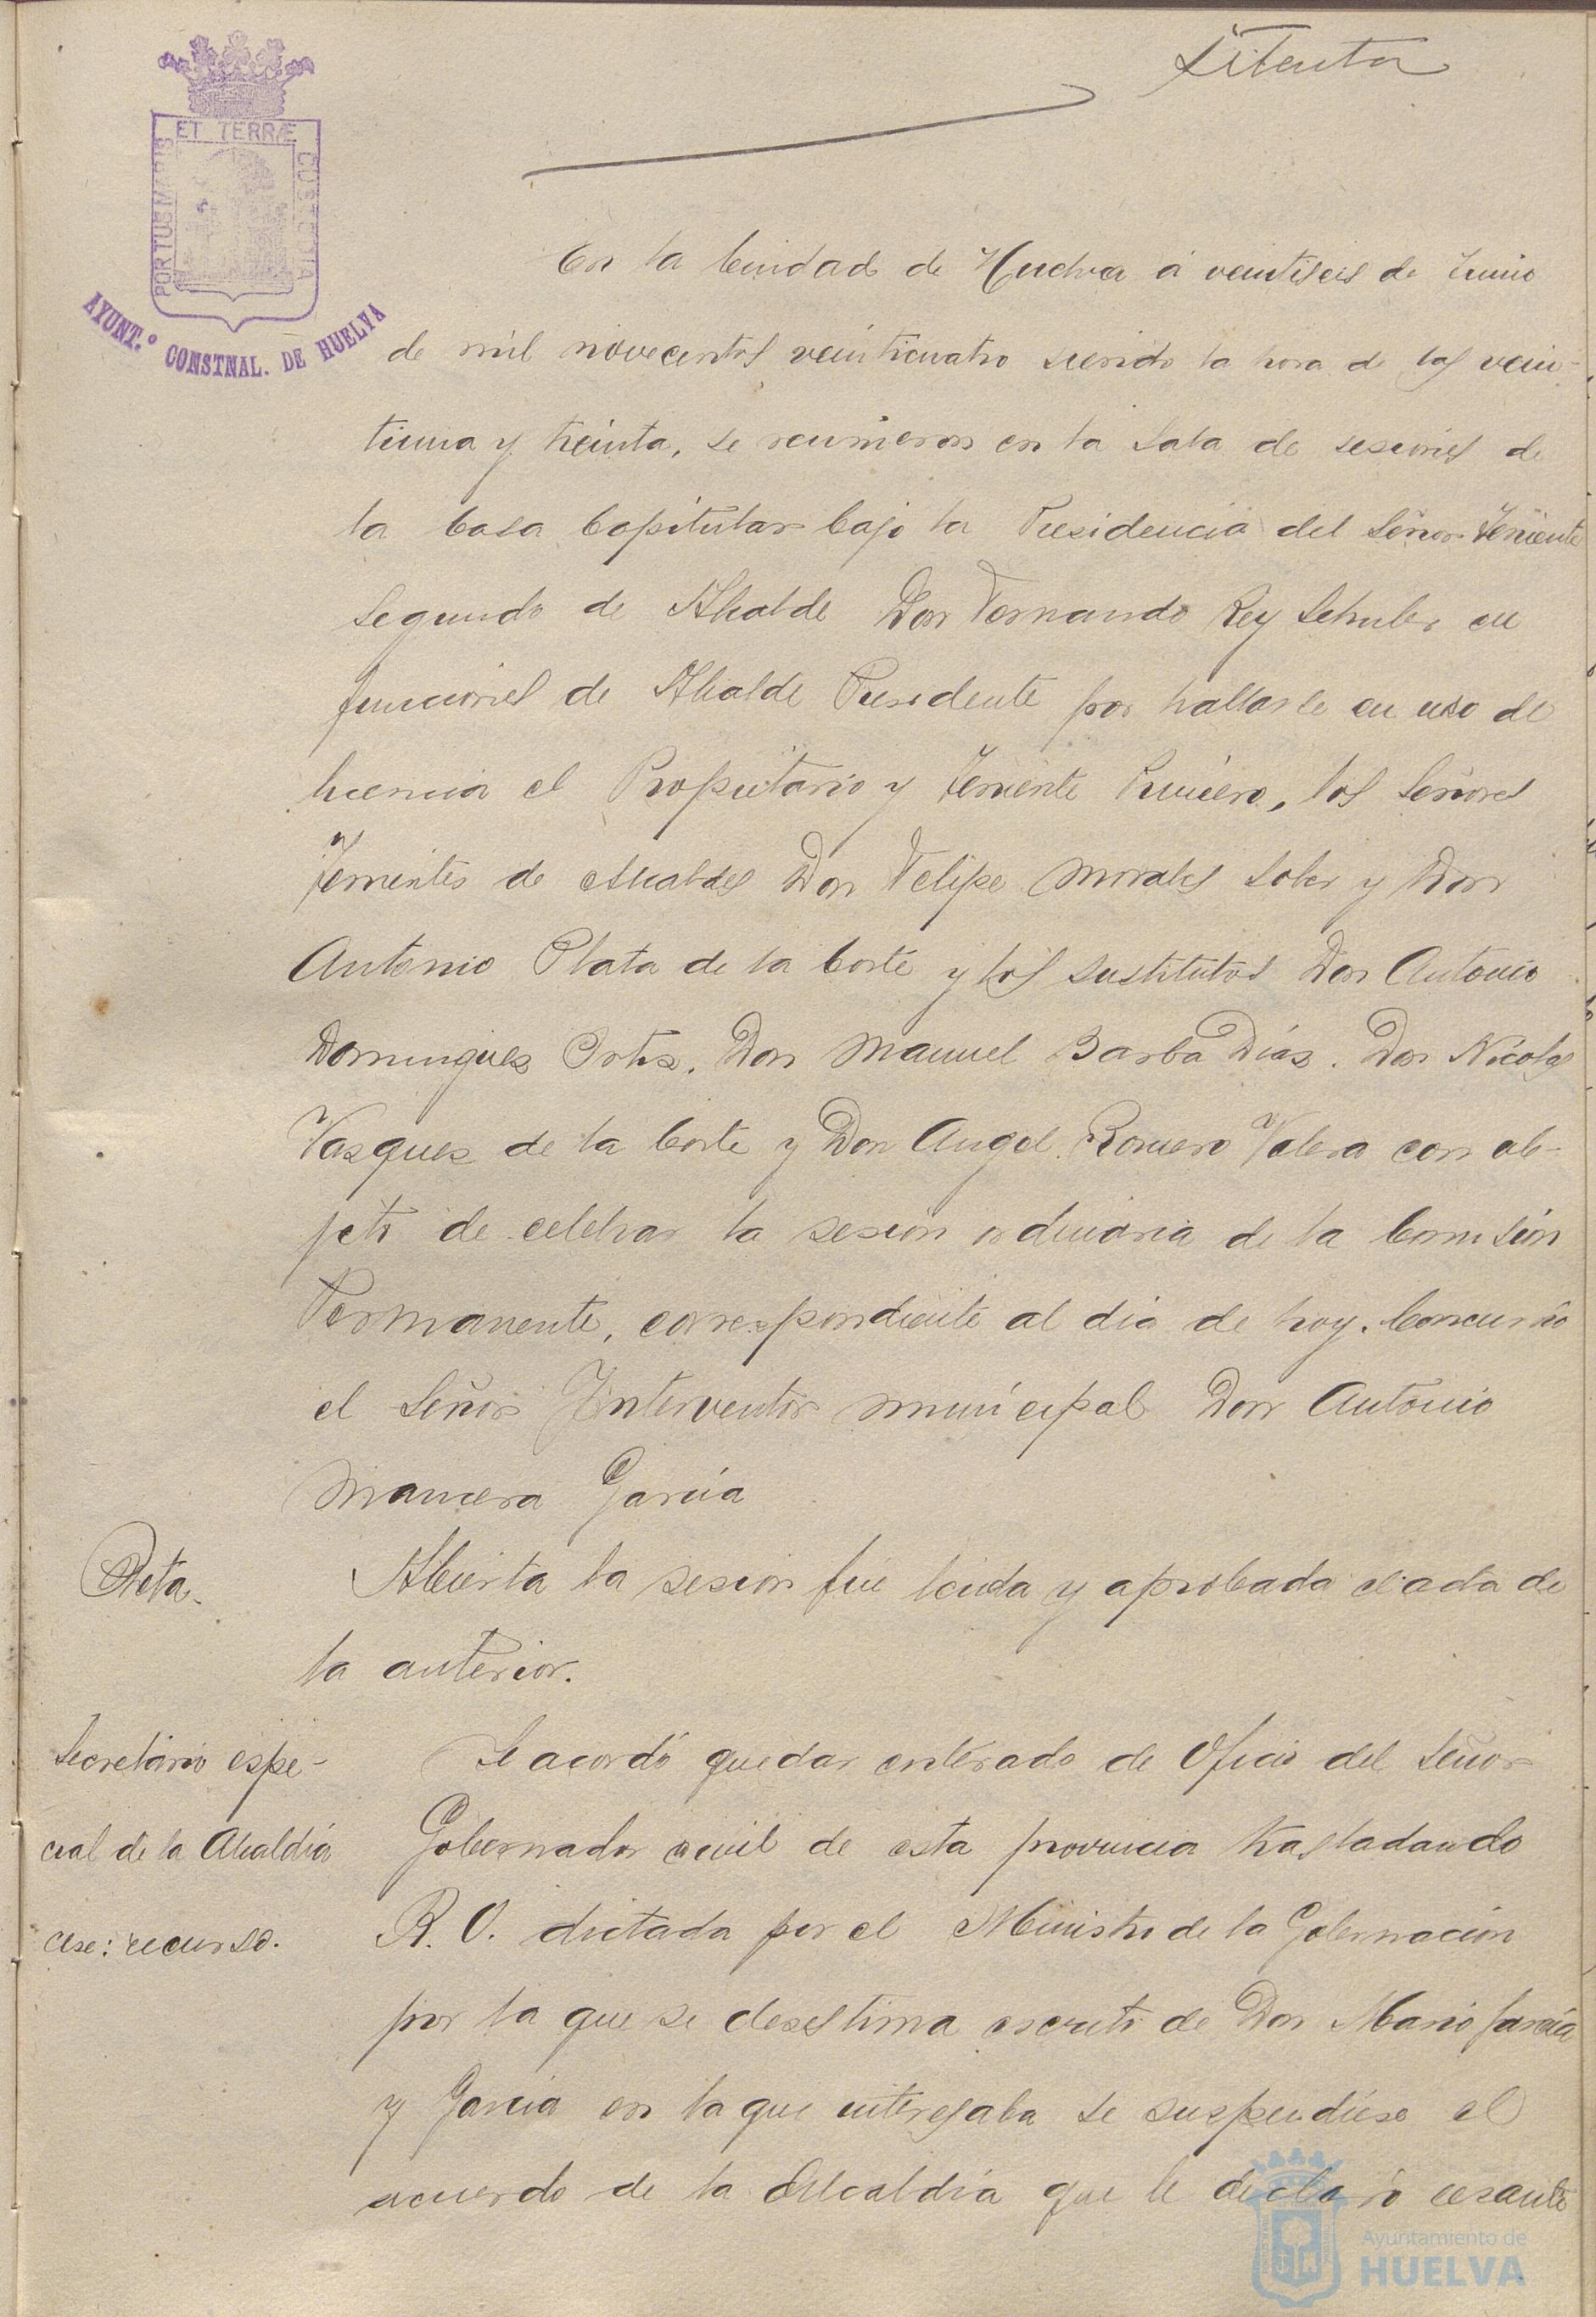 Setenta
ET TERRÆ
PORTUS MARIS
CUSTODIA
AYUNT.º CONSTNAL. DE HUELVA
En la Ciudad de Huelva á veintiseis de Junio
de mil novecientos veinticuatro siendo la hora de las vein-
tiuna y treinta, se reunieron en la Sala de sesiones de
la Casa Capitular bajo la Presidencia del Señor Teniente
Segundo de Alcalde Don Fernando Rey Schuler en
funciones de Alcalde Presidente por hallarse en uso de
licencia el Propietario y Teniente Primero, los Señores
Tenientes de Alcaldes Don Felipe Morales Soler y Don
Antonio Plata de la Corte y los sustitutos Don Antonio
Domingues Ortiz, Don Manuel Barba Dias, Don Nicolas
Vasques de la Corte y Don Angel Romero Valera con ob-
jeto de celebrar la sesion ordinaria de la Comisión
Permanente, correspondiente al dia de hoy. Concurrió
el Señor Interventor municipal Don Antonio
Mancera García
Acta.
Abierta la sesion fue leida y aprobada el acta de
la anterior.
Secretario espe-
cial de la Alcaldía
recurso.
Se acordó quedar enterado de Oficio del Señor
Gobernador civil de esta provincia trasladando
R. O. dictada por el Ministro de la Gobernación
por la que se desestima escrito de Don Mario García
y García en la que interesaba se suspendiese el
acuerdo de la Alcaldía que le declaró cesante
Ayuntamiento de
HUELVA